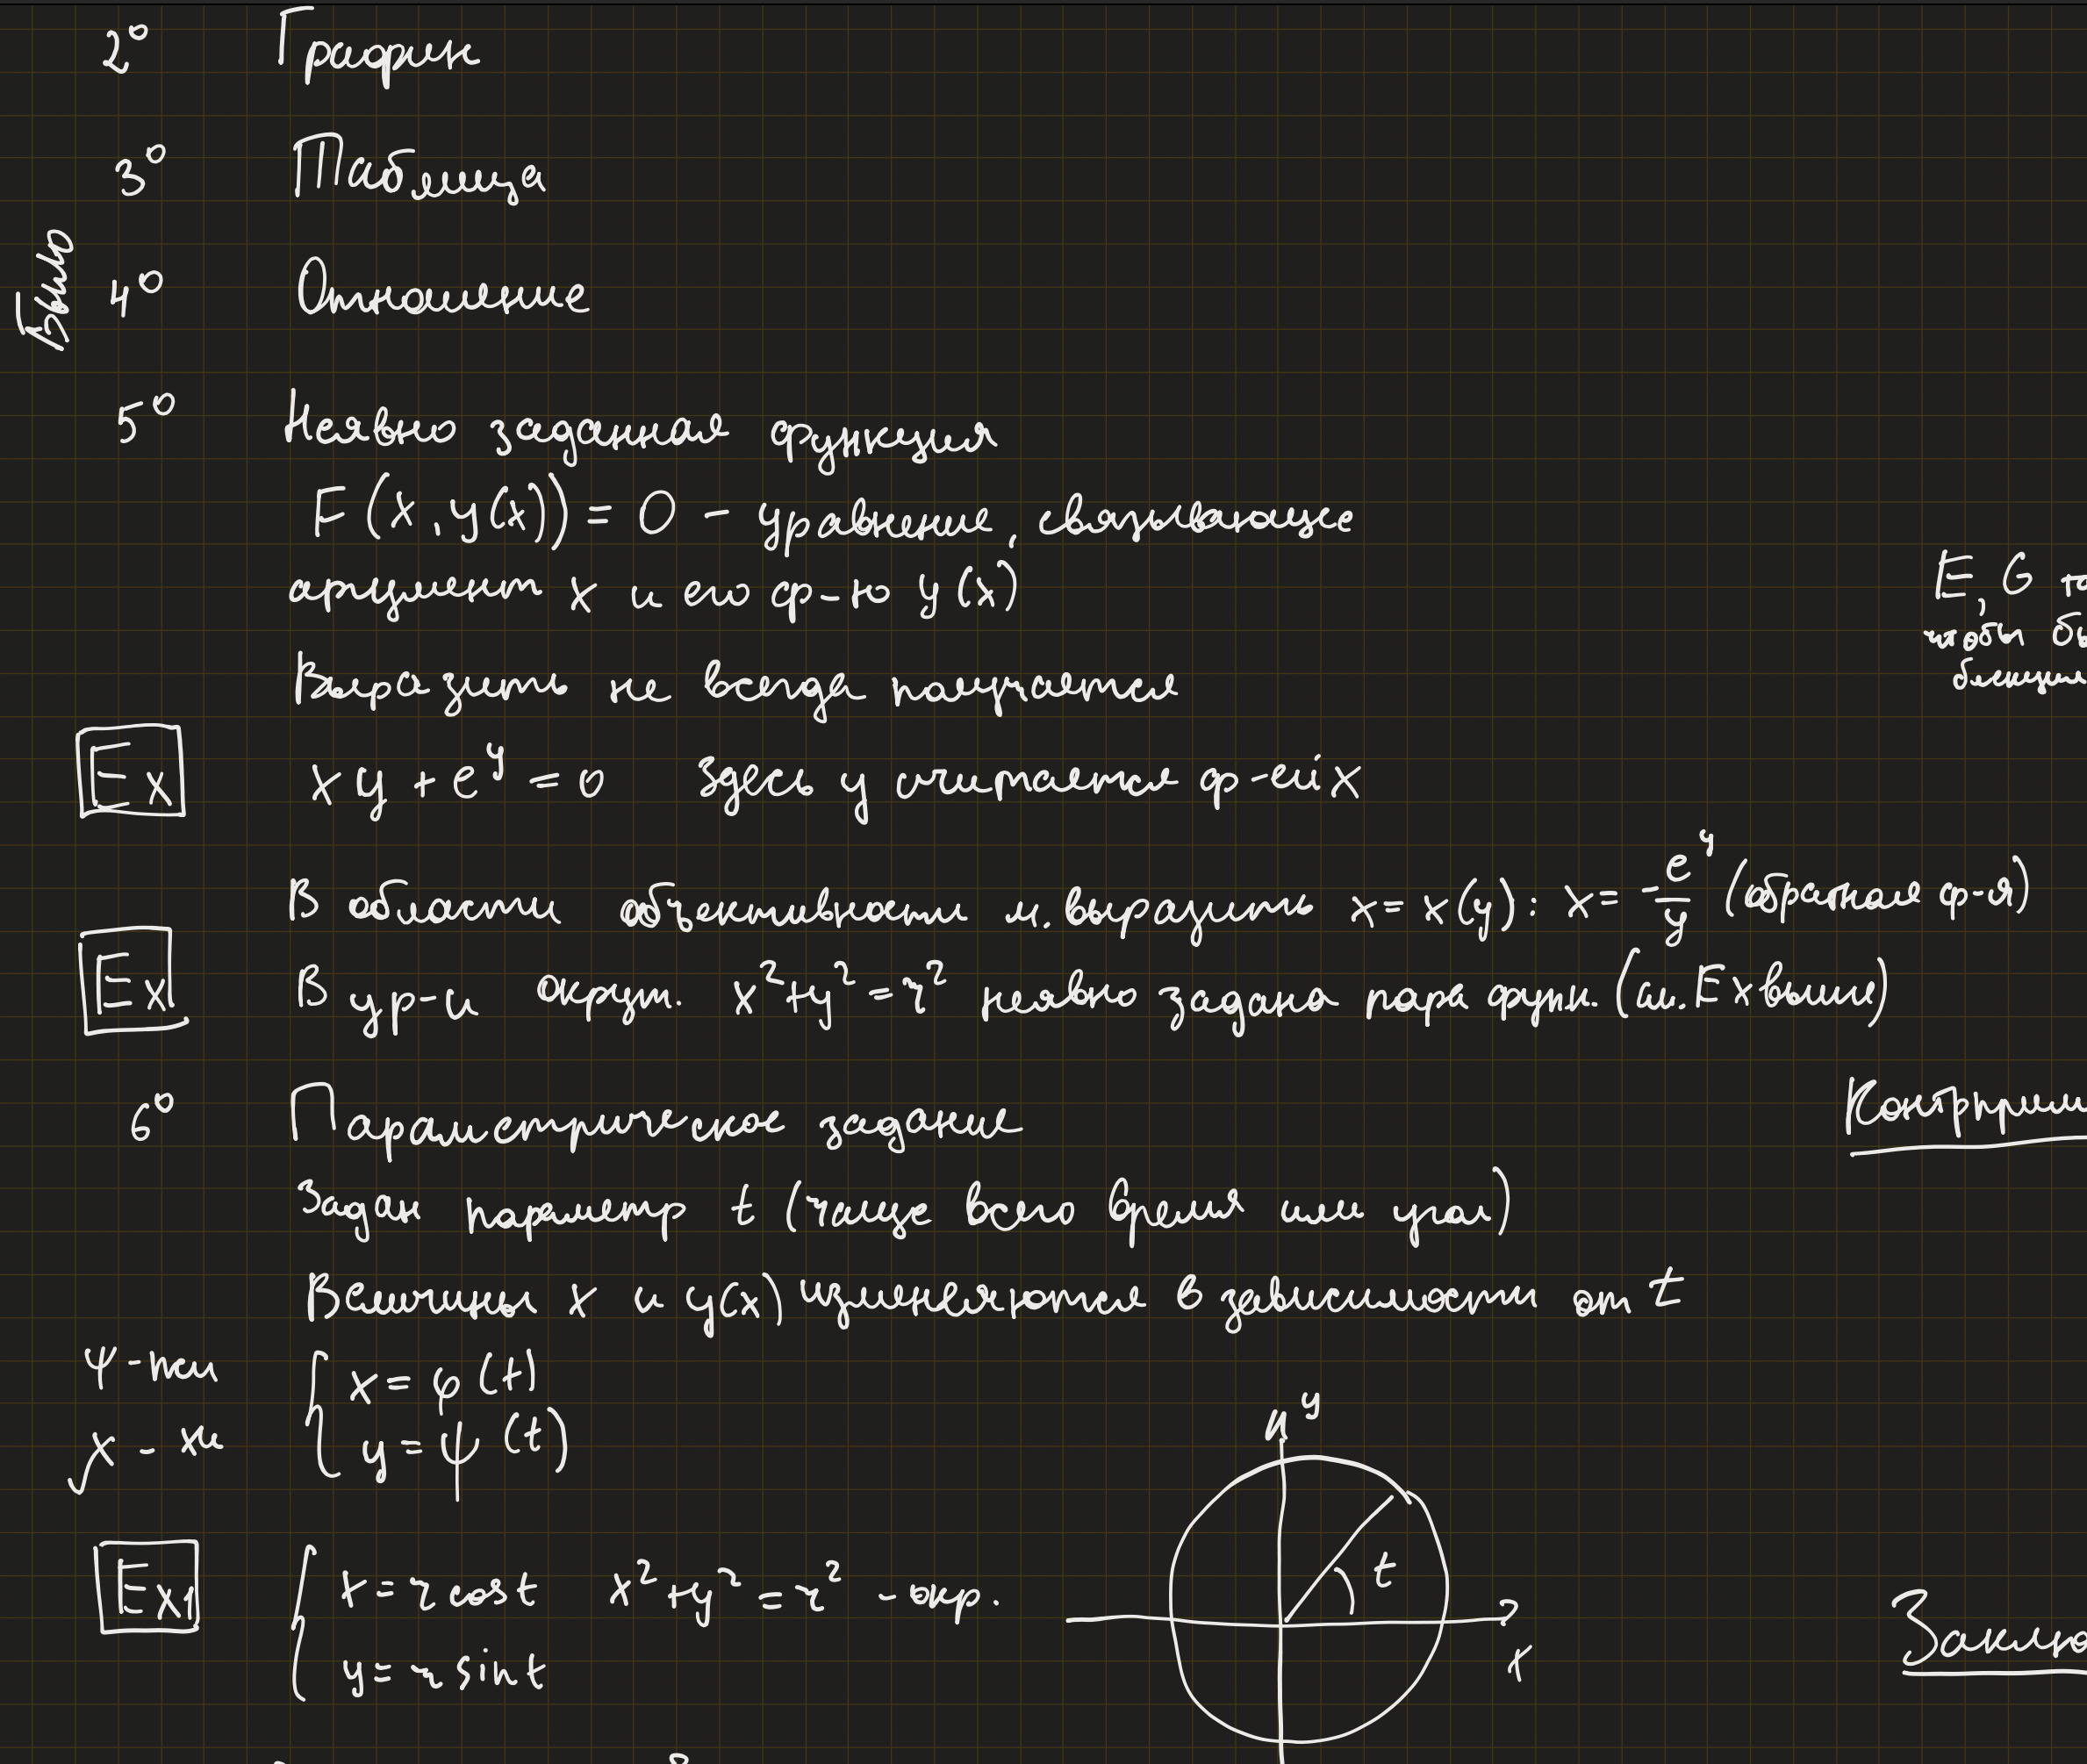 2° График
3° Таблица
Было
4° Отношение
5° Неявно заданная функция
F(x, y(x)) = 0 - уравнение, связывающее
аргумент x и его ф-ю y(x)
E, G
чтобы
биекция
Выразить не всегда получается
Ex xy + e^y = 0 Здесь y считается ф-ей x
В области объективности м. выразить x = x(y): x = -e^y/y (обратная ф-я)
Ex В ур-и окруж. x² + y² = r² неявно задана пара функ. (см. Ex выше)
6° Параметрическое задание
Задан параметр t (чаще всего время или угол)
Величины x и y(x) изменяются в зависимости от t
ψ - пси { x = φ(t)
χ - хи { y = ψ(t)
y
Ex1 { x = r cos t x² + y² = r² - окр.
t
y = r sin t
x